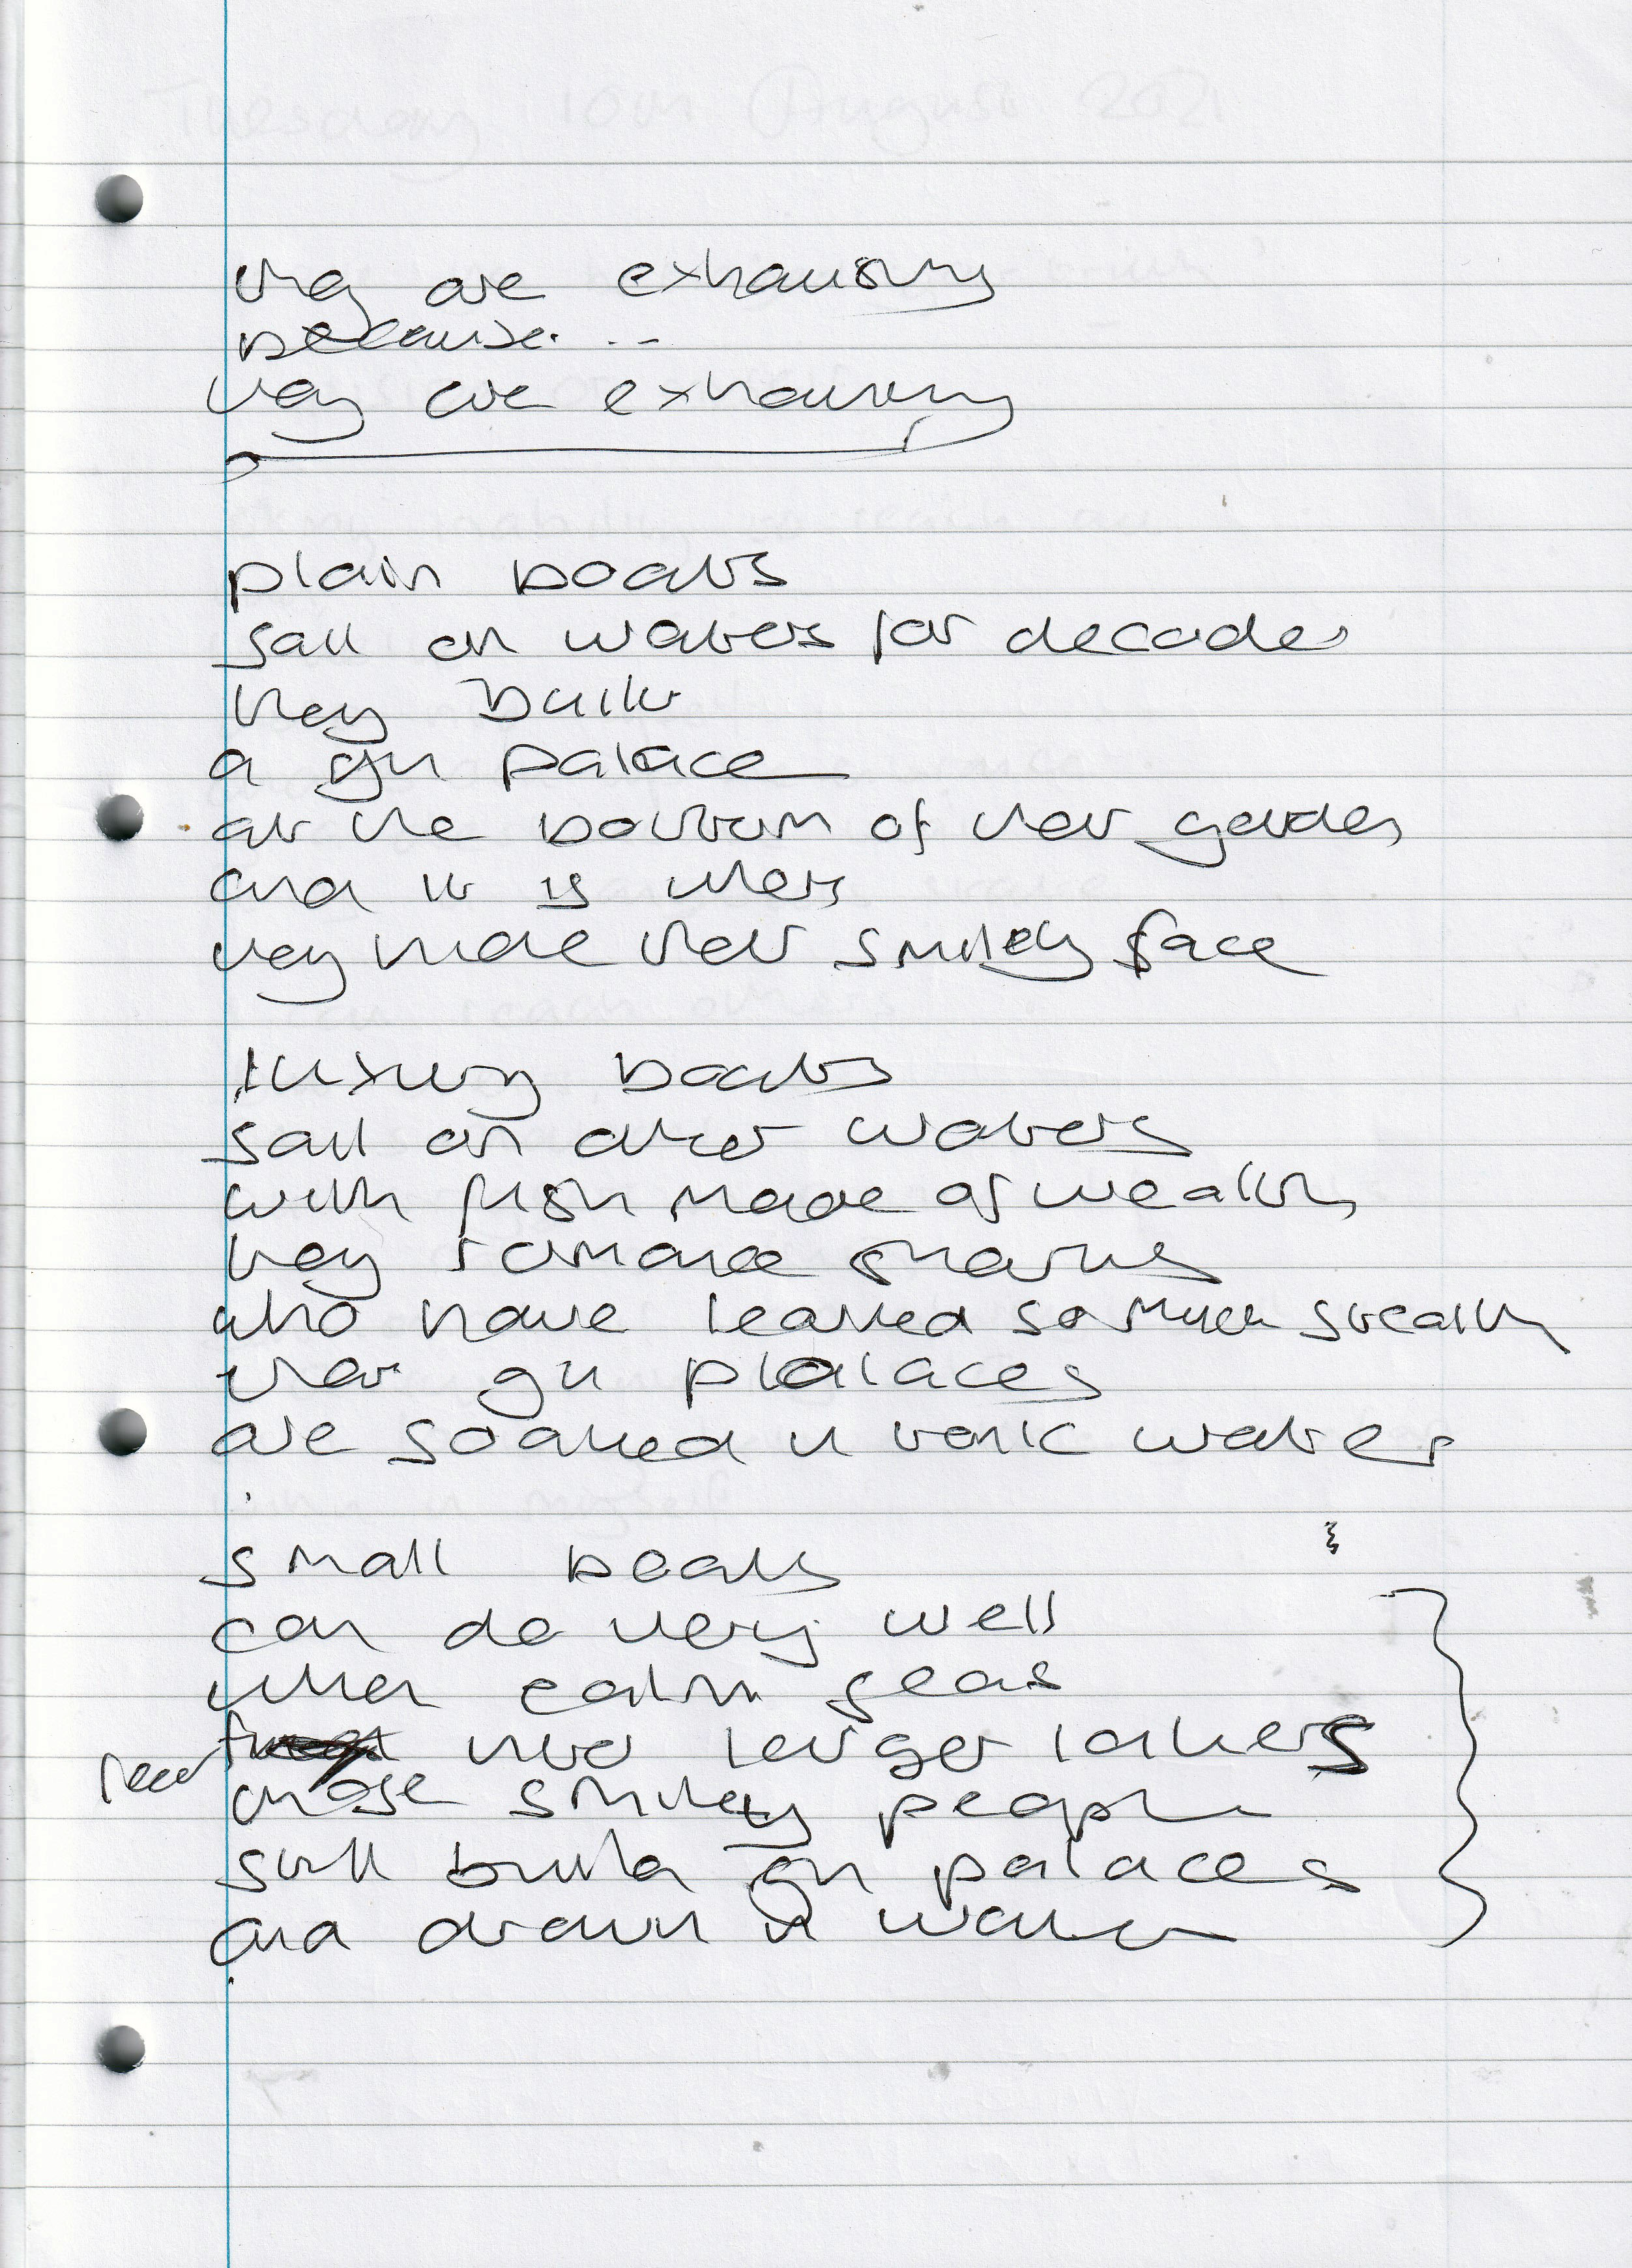 Tuesday 10th August 2021
they are exhausting
because...
they are exhausting
plain boats
sail on waters for decades
they built
a gin palace
at the bottom of their garden
and it is where
they hide their smiley face
luxury boats
sail on other waters
with fish made of wealth
they romance sharks
who have leaked so much
their gin palaces
are soaked in tonic water
small boats
can do very well
when calm seas
feed into larger lakes
those smiley people
still build gin palaces
and drown in water